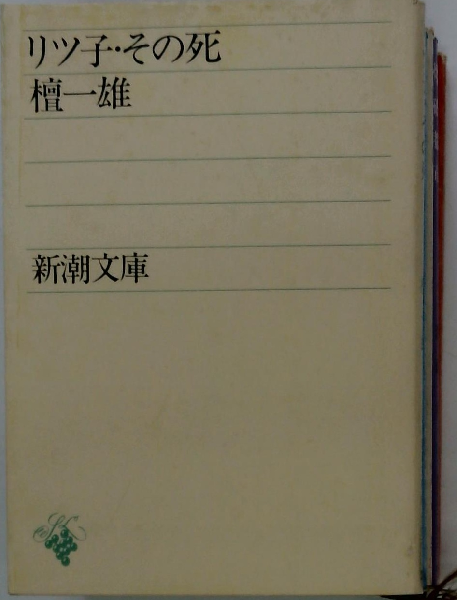 リツ子・その死
檀一雄
新潮文庫